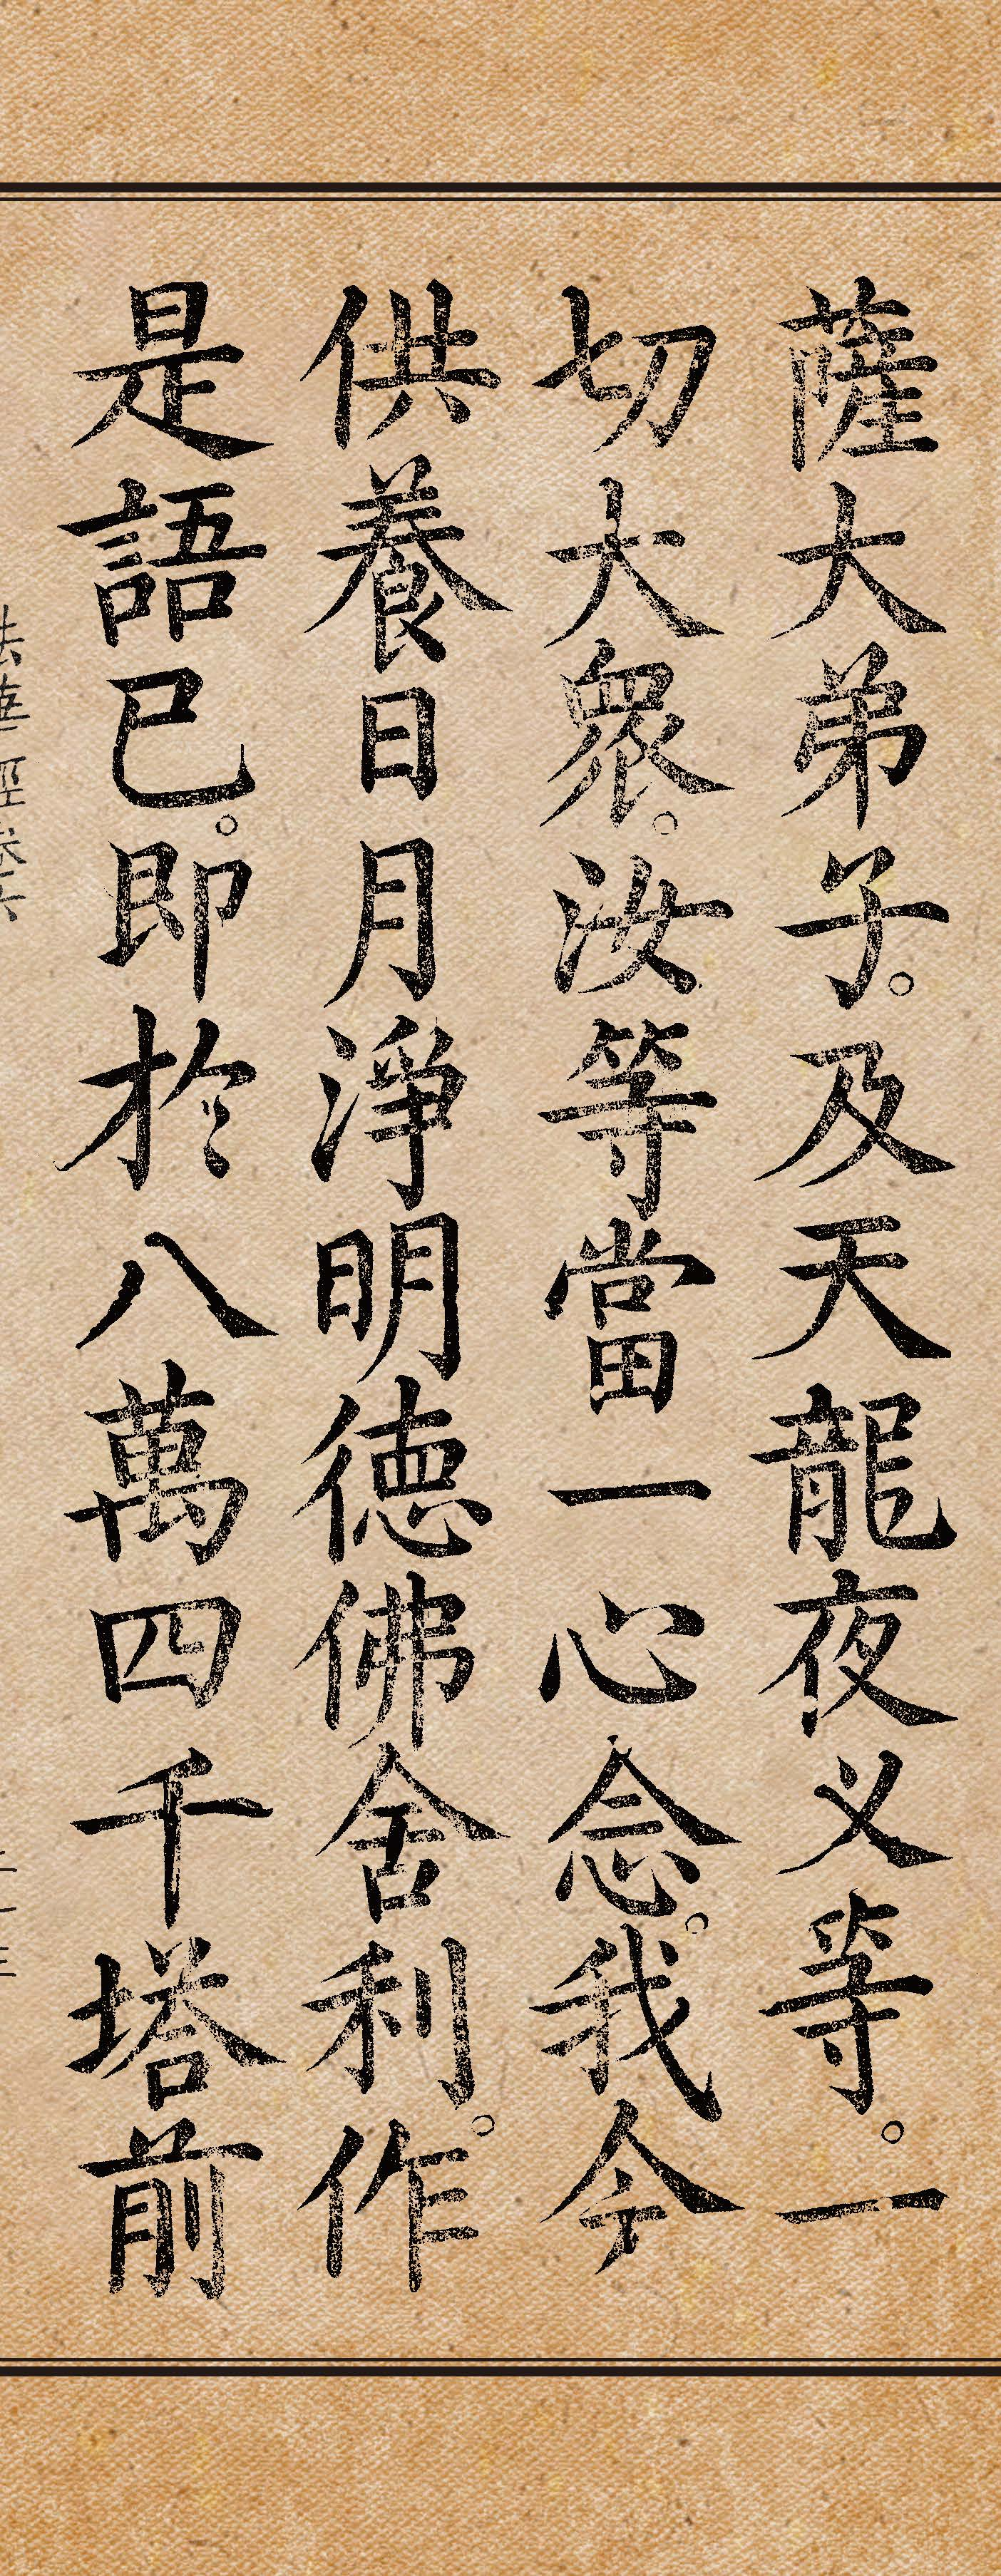 薩大弟子。及天龍夜叉等。一
切大衆。汝等當一心念。我今
供養日月淨明德佛舍利。作
是語已。即於八萬四千塔前